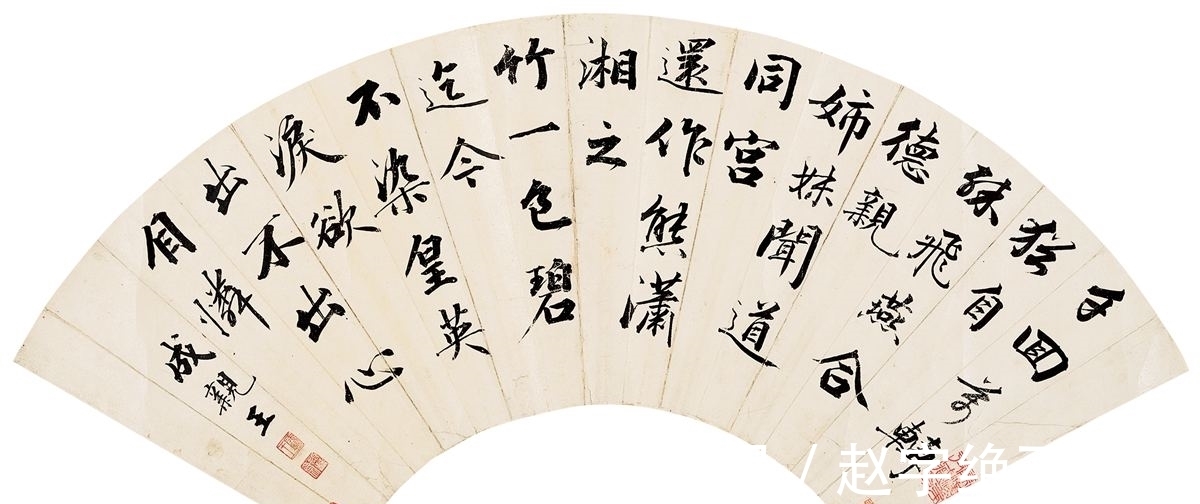 千回萬轉
猶自
殊飛燕合
德親
姊妹聞道
同宮
還作熊瀟
湘之
竹一色碧
迄今
不染皇英
淚欲
出不出心
自憐
成親王
/ 赵学绝